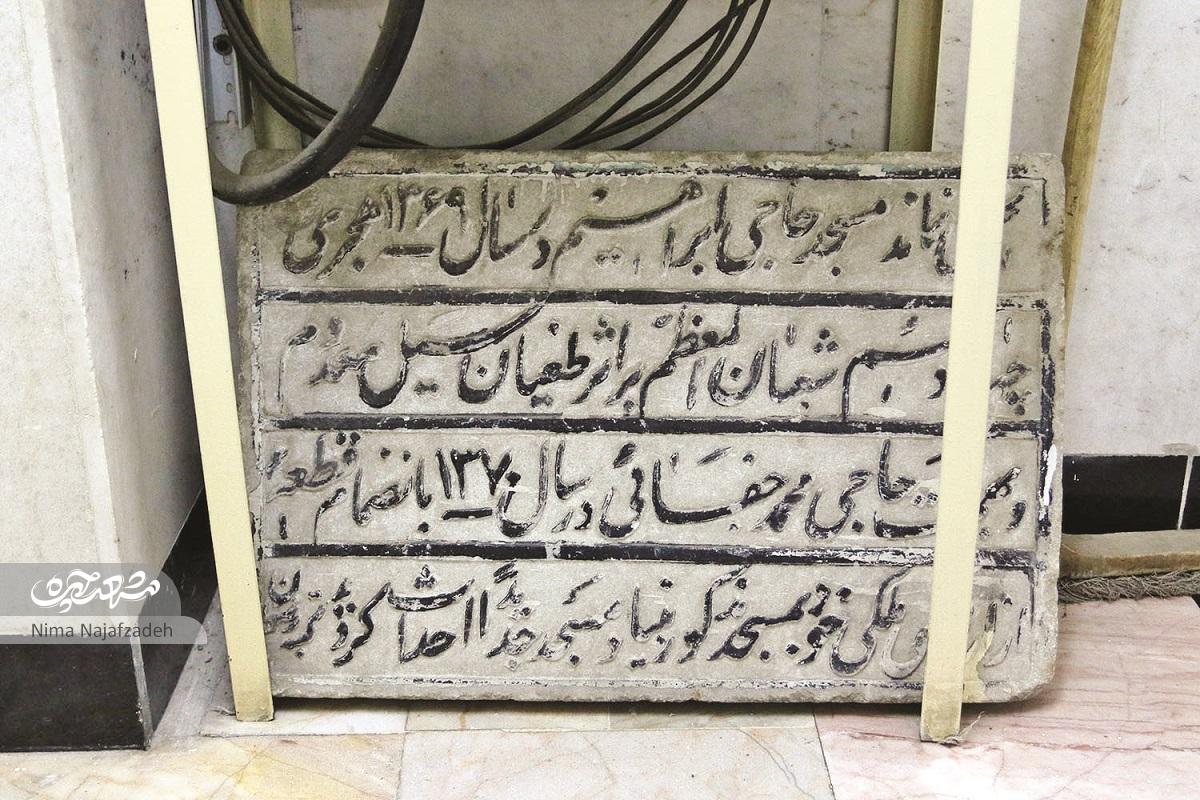 نماند مسجد حاجی ابراهیم در سال ۱۳۶۹ هجری
شعبان المعظم بر اثر طغیان سیل منهدم
حاجی محمد حفائی در سال ۱۳۷۰ بانضمام قطعهٔ
از ملکی خود بمسجد مذکور بنیاد مسجد جدید احداث کرد
شهرآرانیوز
Nima Najafzadeh